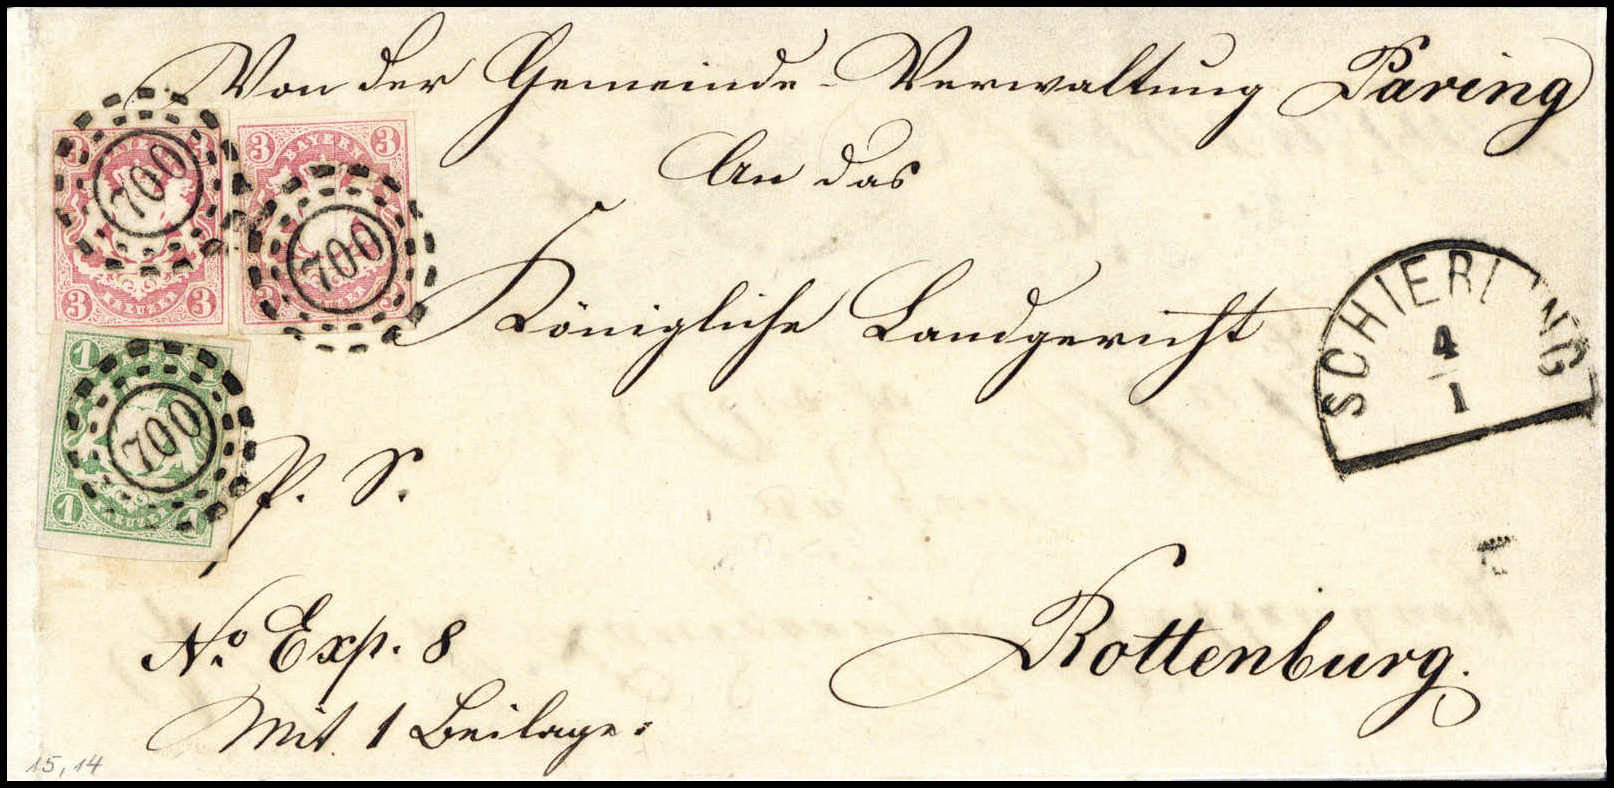 Von der Gemeinde-Verwaltung Paring
An das
Königliche Landgericht
P. S.
Rottenburg.
No. Exp. 8
Mit 1 Beilage:
15, 14
3 3
BAYERN
700
3 3
KREUZER
3 3
BAYERN
700
KREUZER
1
700
1 1
KREUZER
SCHIERLING
4
1